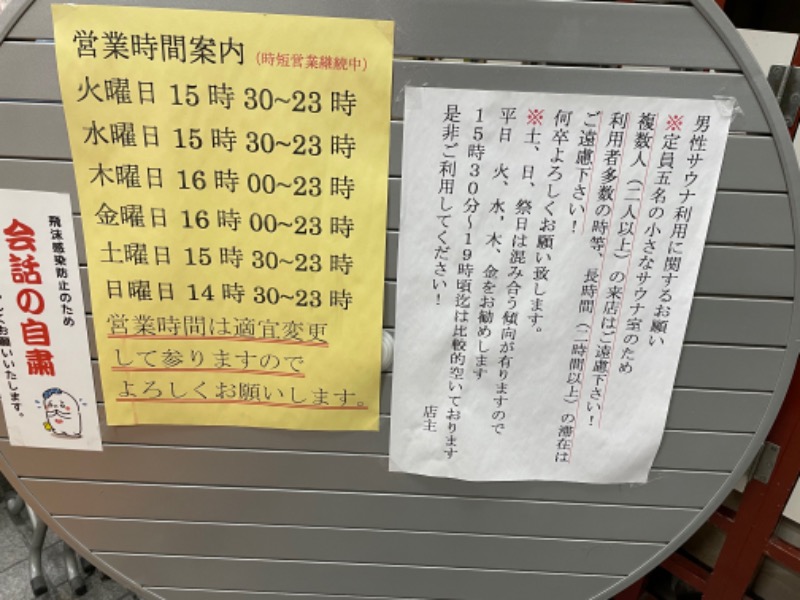 営業時間案内 (時短営業継続中)
火曜日 15時30~23時
水曜日 15時30~23時
木曜日 16時00~23時
金曜日 16時00~23時
土曜日 15時30~23時
日曜日 14時30~23時
営業時間は適宜変更
して参りますので
よろしくお願いします。
男性サウナ利用に関するお願い
※定員五名の小さなサウナ室のため
複数人（二人以上）の来店はご遠慮下さい！
利用者多数の時等、長時間（二時間以上）の滞在は
ご遠慮下さい！
何卒よろしくお願い致します。
※土、日、祭日は混み合う傾向が有りますので
平日 火、水・木、金をお勧めします
15時30分〜19時頃迄は比較的空いております
是非ご利用してください！
店主
飛沫感染防止のため
会話の自粛
しくお願いいたします。